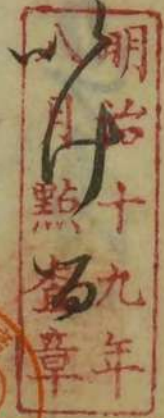 明治十九年
八月點査章
ける